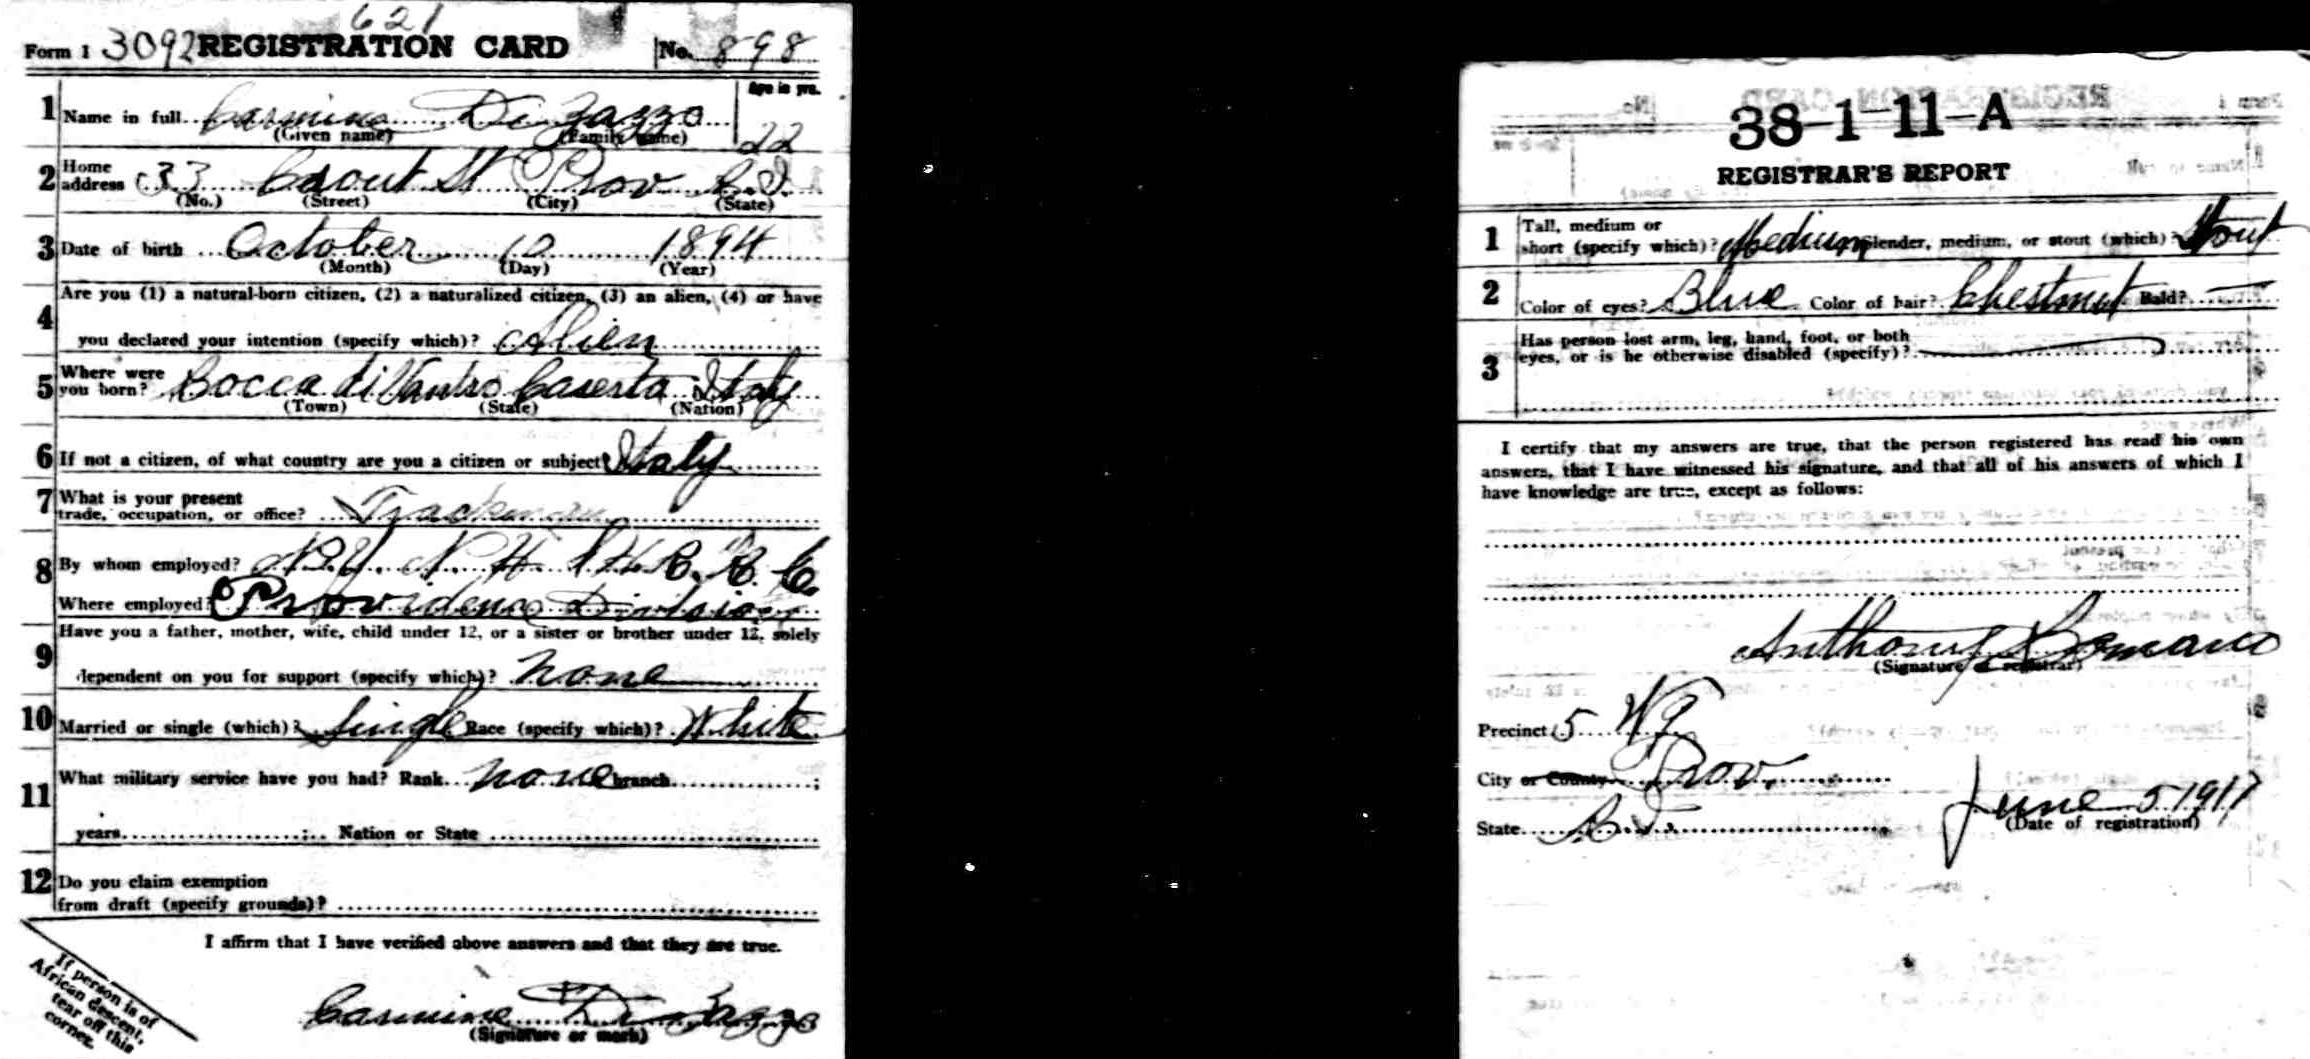 621
Form 1 3092 REGISTRATION CARD No. 898
Age in yrs.
1 Name in full Carmine Di Zazzo 22
(Given name) (Family name)
2 Home address 33 St Prov R.I.
(No.) (Street) (City) (State)
3 Date of birth October 10 1894
(Month) (Day) (Year)
4 Are you (1) a natural-born citizen, (2) a naturalized citizen, (3) an alien, (4) or have
you declared your intention (specify which)? Alien
5 Where were you born? Rocca di Caserta Italy
(Town) (State) (Nation)
6 If not a citizen, of what country are you a citizen or subject? Italy
7 What is your present
trade, occupation, or office? Trackman
8 By whom employed? N.Y. N.H. & H. R. R. Co.
Where employed? Providence Division
9 Have you a father, mother, wife, child under 12, or a sister or brother under 12, solely
dependent on you for support (specify which)? None
10 Married or single (which)? Single Race (specify which)? White
11 What military service have you had? Rank None branch ;
years ; Nation or State
12 Do you claim exemption
from draft (specify grounds)?
I affirm that I have verified above answers and that they are true.
Carmine Di Zazzo
(Signature or mark)
If person is of
African descent,
tear off this
corner.
38-1-11-A
REGISTRAR'S REPORT
1 Tall, medium or
short (specify which)? Medium Slender, medium, or stout (which)? Stout
2 Color of eyes? Blue Color of hair? Chestnut Bald? —
3 Has person lost arm, leg, hand, foot, or both
eyes, or is he otherwise disabled (specify)?
I certify that my answers are true, that the person registered has read his own
answers, that I have witnessed his signature, and that all of his answers of which I
have knowledge are true, except as follows:
Anthony Romano
(Signature of registrar)
Precinct 5 W9
City or County Prov.
State R.I. June 5 1917
(Date of registration)